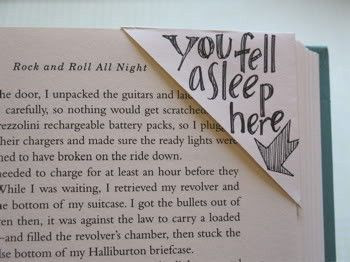 Rock and Roll All Night
you fell
asleep
here
he door, I unpacked the guitars and
carefully, so nothing would get scratched
ezzolini rechargeable battery packs, so I
heir chargers and made sure the ready lights were
ned to have broken on the ride down.
needed to charge for at least an hour before they
While I was waiting, I retrieved my revolver and
e bottom of my suitcase. I got the bullets out of
en then, it was against the law to carry a loaded
—and filled the revolver's chamber, then stuck the
lse bottom of my Halliburton briefcase.